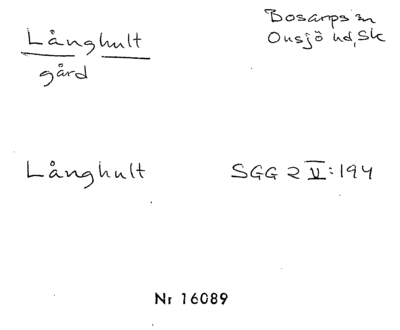 Långhult
gård
Bosarps sn
Onsjö hd, Sk
Långhult
SGG 2 V:194
Nr 16089